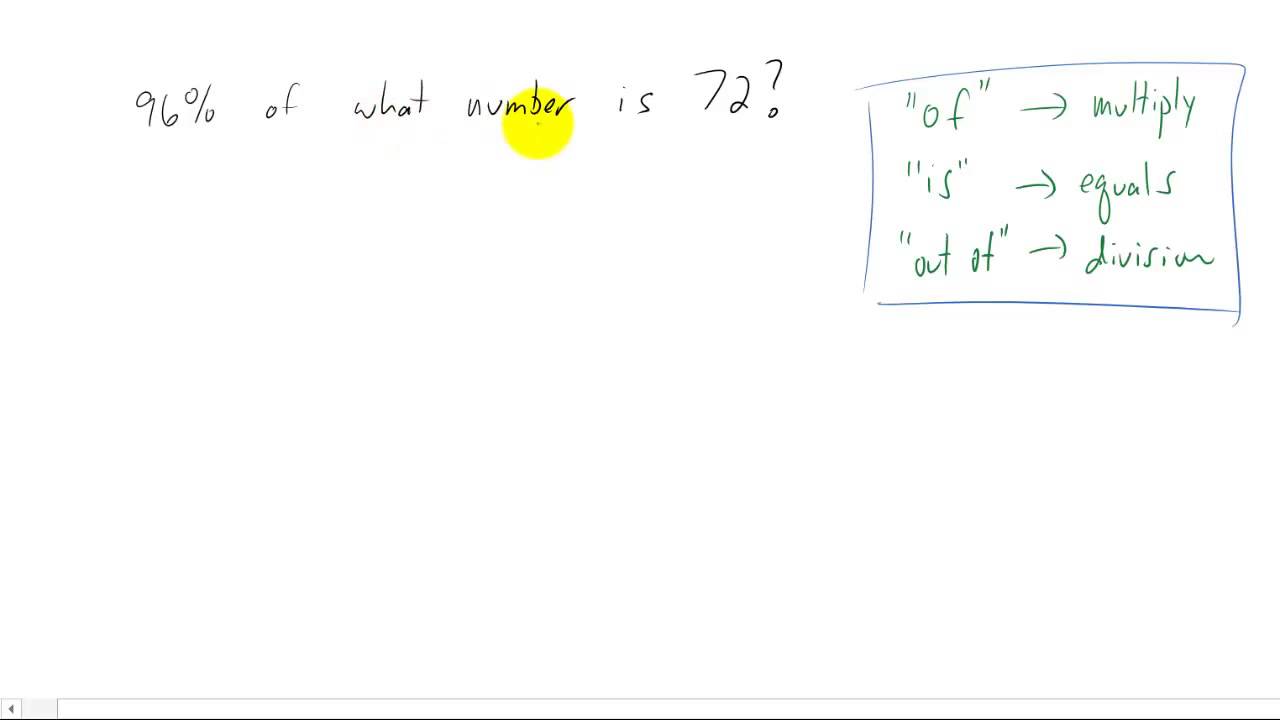 96% of what number is 72?
"of" → multiply
"is" → equals
"out of" → division